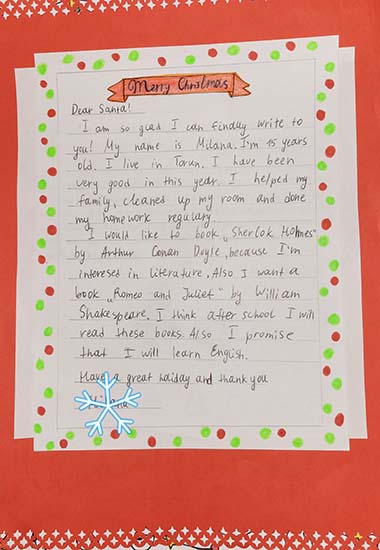 Merry Christmas
Dear Santa!
I am so glad I can finally write to
you! My name is Milana. I'm 15 years
old. I live in Torun. I have been
very good in this year. I helped my
family, cleaned up my room and done
my homework regulary.
I would like to book „Sherlok Holmes"
by Arthur Conan Doyle, because I'm
interesed in literature. Also I want a
book „Romeo and Juliet" by William
Shakespeare. I think after school I will
read these books. Also I promise
that I will learn English.
Have a great holiday and thank you